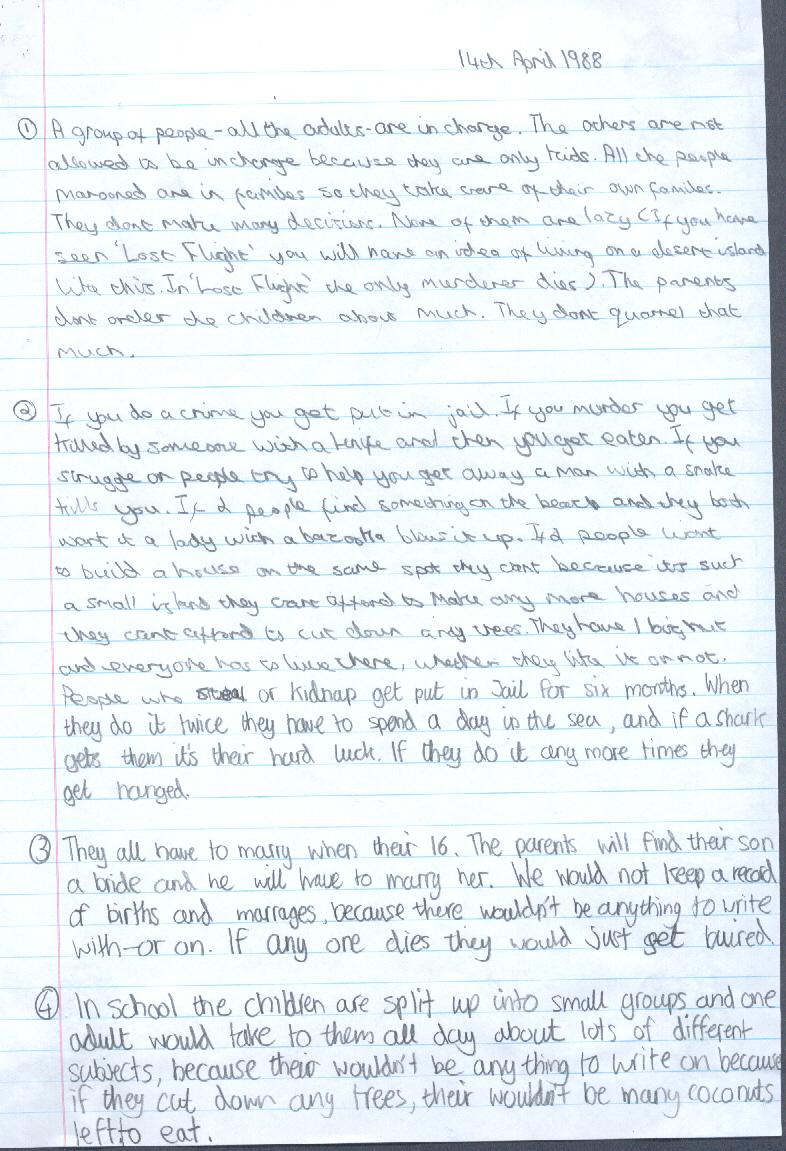 14th April 1988
① A group of people - all the adults - are in charge. The others are not
allowed to be in charge because they are only kids. All the people
marooned are in families so they take care of their own familes.
They dont make many decisions. None of them are lazy (If you have
seen 'Lost Flight' you will have an idea of living on a desert island
like this. In 'Lost Flight' the only murderer dies). The parents
dont order the children about much. They dont quarrel that
much.
② If you do a crime you get put in jail. If you murder you get
killed by someone with a knife and then you get eaten. If you
struggle or people try to help you get away a man with a snake
kills you. If 2 people find something on the beach and they both
want it a lady with a bazooka blows it up. If 2 people want
to build a house on the same spot they cant because it's such
a small island they cant afford to make any more houses and
they cant afford to cut down any trees. They have 1 big hut
and everyone has to live there, whether they like it or not.
People who steal or kidnap get put in Jail for six months. When
they do it twice they have to spend a day in the sea, and if a shark
gets them it's their hard luck. If they do it any more times they
get hanged.
③ They all have to marry when their 16. The parents will find their son
a bride and he will have to marry her. We would not keep a record
of births and marrages, because there wouldn't be anything to write
with-or on. If any one dies they would just get buired.
④ In school the children are split up into small groups and one
adult would take to them all day about lots of different
subjects, because their wouldn't be any thing to write on because
if they cut down any trees, their wouldn't be many coconuts
left to eat.